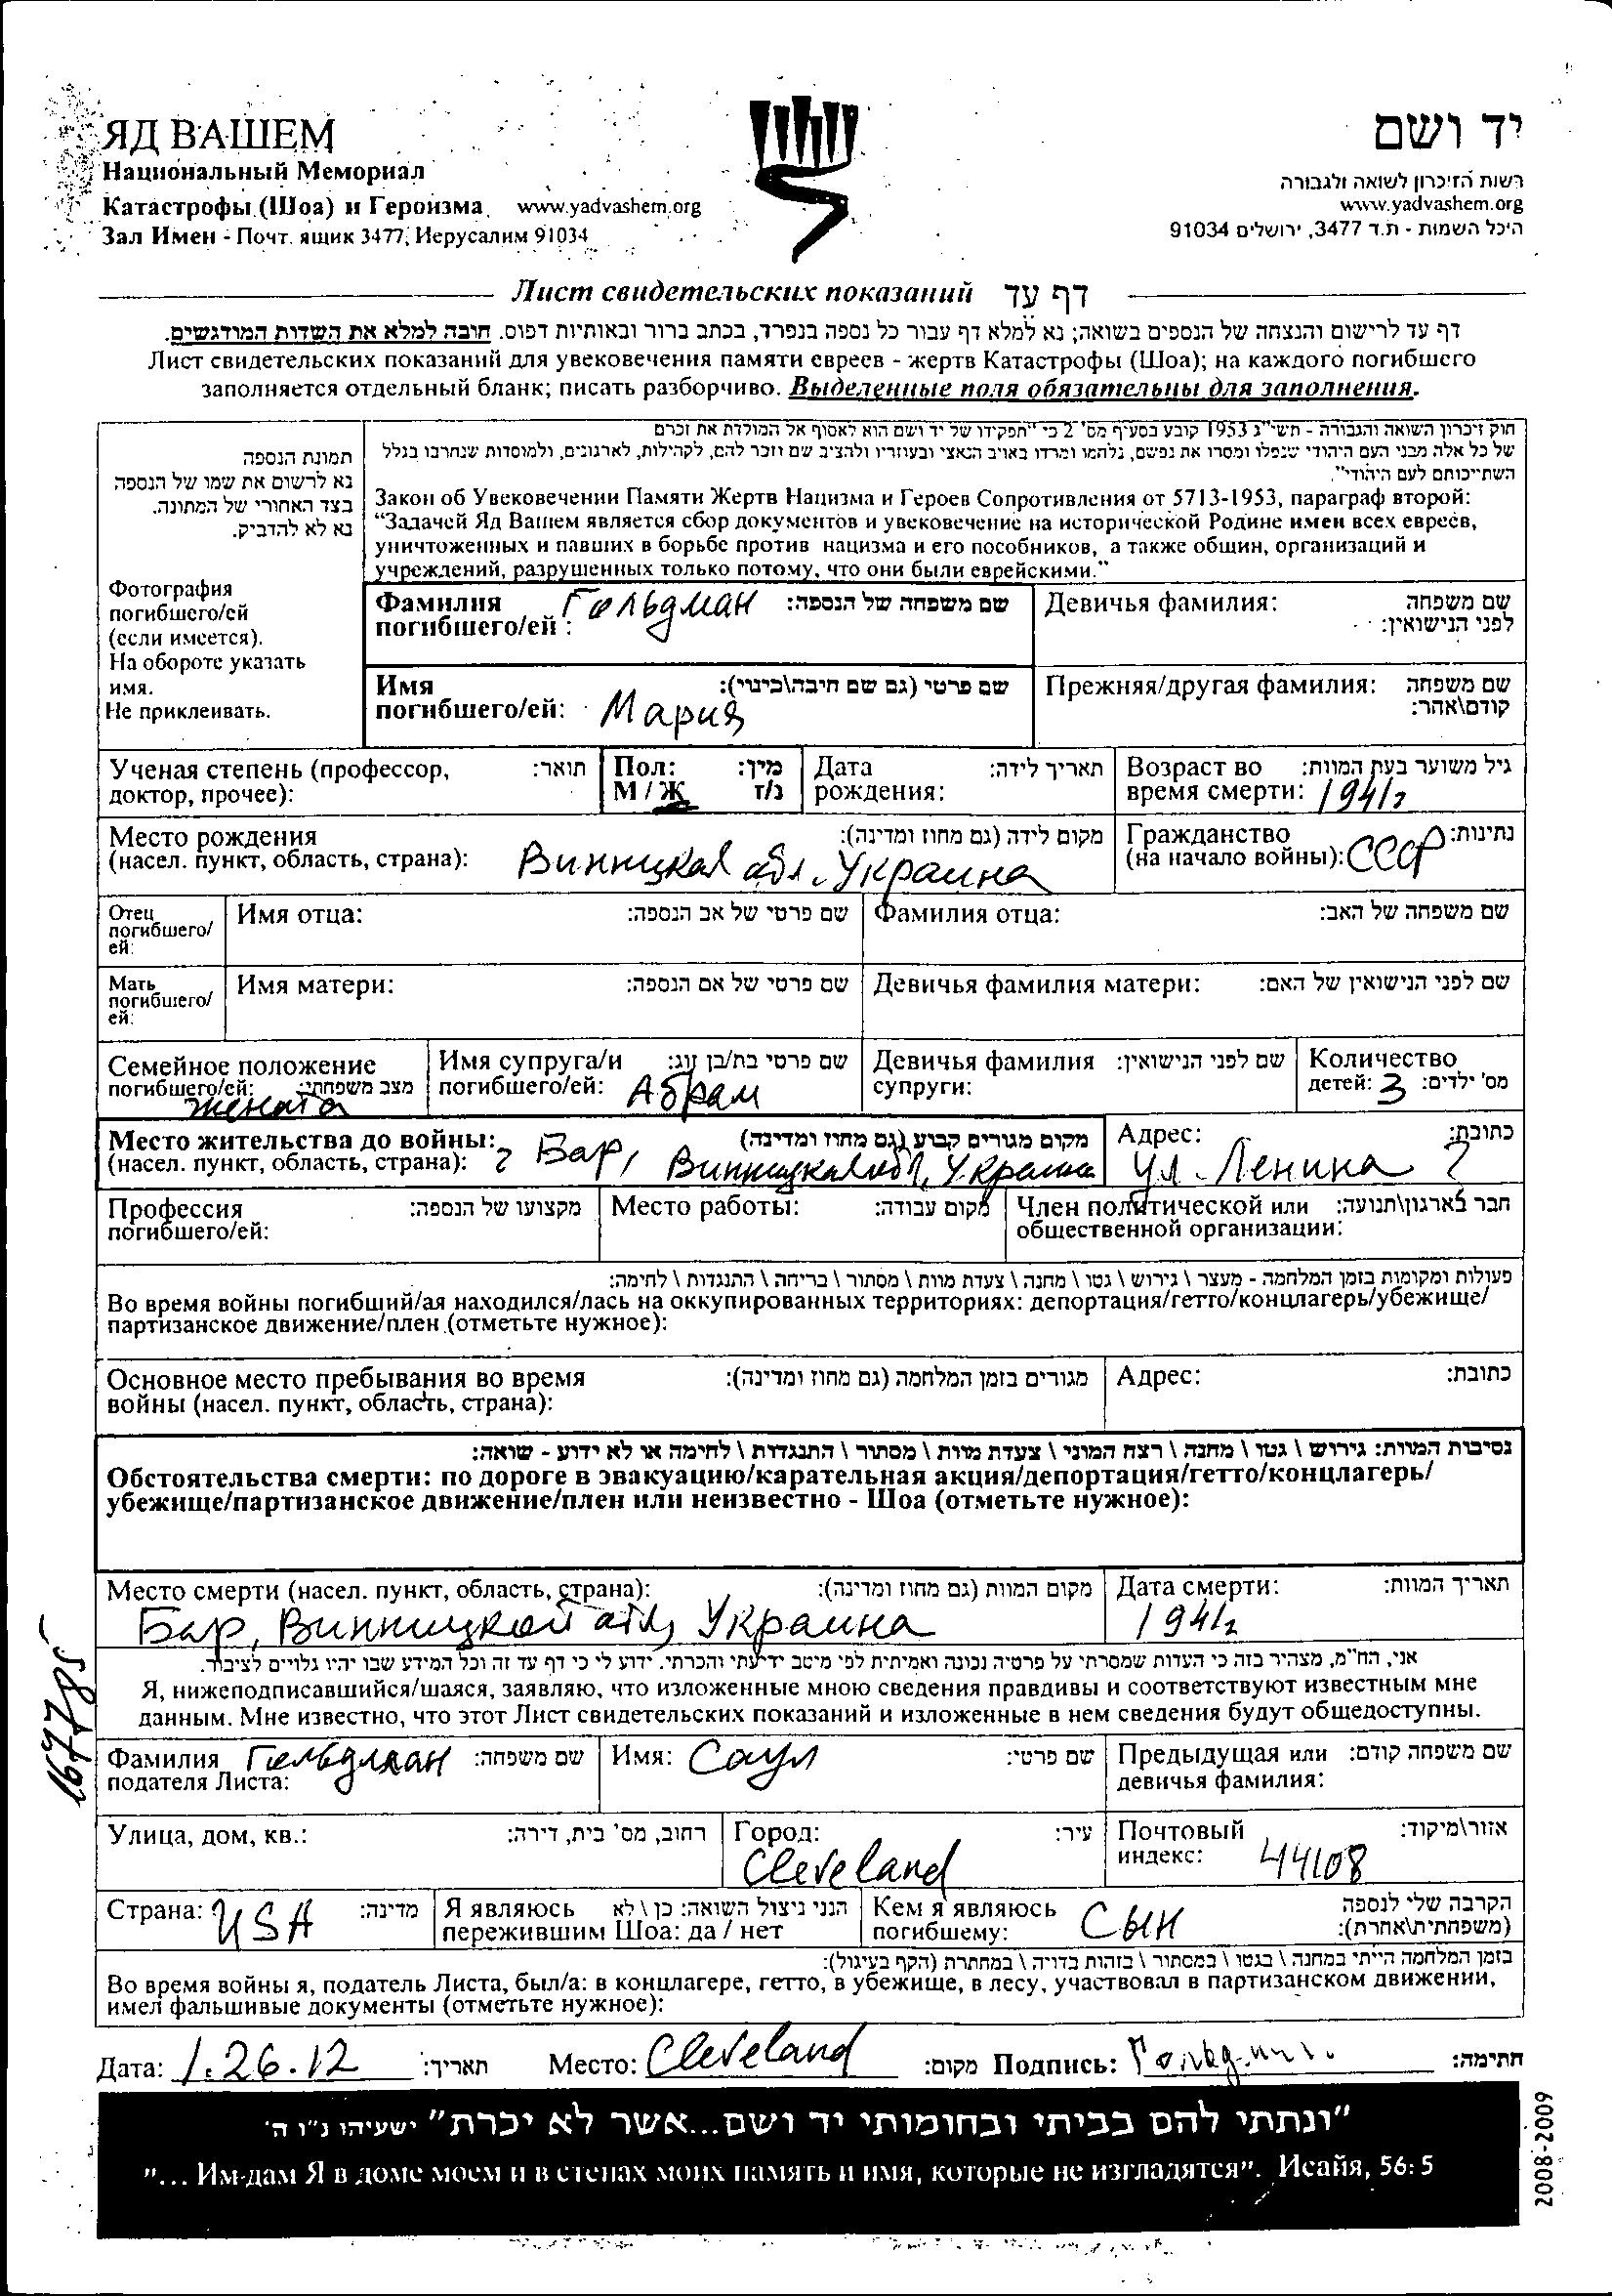 ЯД ВАШЕМ
Национальный Мемориал
Катастрофы (Шоа) и Героизма www.yadvashem.org
Зал Имен - Почт. ящик 3477, Иерусалим 91034
יד ושם
רשות הזיכרון לשואה ולגבורה
www.yadvashem.org
היכל השמות - ת.ד 3477, ירושלים 91034
Лист свидетельских показаний דף עד
דף עד לרישום והנצחה של הנספים בשואה; נא למלא דף עבור כל נספה בנפרד, בכתב ברור ובאותיות דפוס. חובה למלא את השדות המודגשים.
Лист свидетельских показаний для увековечения памяти евреев - жертв Катастрофы (Шоа); на каждого погибшего
заполняется отдельный бланк; писать разборчиво. Выделенные поля обязательны для заполнения.
תמונת הנספה
נא לרשום את שמו של הנספה
בצד האחורי של התמונה.
נא לא להדביק.
Фотография
погибшего/ей
(если имеется).
На обороте указать
имя.
Не приклеивать.
חוק זיכרון השואה והגבורה - תשי"ג 1953 קובע בסעיף מס' 2 כי "תפקידו של יד ושם הוא לאסוף אל המולדת את זכרם
של כל אלה מבני העם היהודי שנפלו ומסרו את נפשם, נלחמו ומרדו באויב הנאצי ובעוזריו ולהציב שם וזכר להם, לקהילות, לארגונים, ולמוסדות שנחרבו בגלל
השתייכותם לעם היהודי".
Закон об Увековечении Памяти Жертв Нацизма и Героев Сопротивления от 5713-1953, параграф второй:
"Задачей Яд Вашем является сбор документов и увековечение на исторической Родине имен всех евреев,
уничтоженных и павших в борьбе против нацизма и его пособников, а также общин, организаций и
учреждений, разрушенных только потому, что они были еврейскими."
Фамилия Гольдман שם משפחה של הנספה:
погибшего/ей :
Девичья фамилия: שם משפחה
לפני הנישואין:
Имя שם פרטי (גם שם חיבה\כינוי):
погибшего/ей: Мария
Прежняя/другая фамилия: שם משפחה
קודם\אחר:
Ученая степень (профессор, תואר:
доктор, прочее):
Пол: מין:
М / Ж ז/נ
Дата תאריך לידה:
рождения:
Возраст во גיל משוער בעת המוות:
время смерти: 1941г
Место рождения מקום לידה (גם מחוז ומדינה):
(насел. пункт, область, страна): Винницкая обл. Украина
Гражданство נתינות:
(на начало войны): СССР
Отец
погибшего/
ей:
Имя отца: שם פרטי של אב הנספה:
Фамилия отца: שם משפחה של האב:
Мать
погибшего/
ей:
Имя матери: שם פרטי של אם הנספה:
Девичья фамилия матери: שם לפני הנישואין של האם:
Семейное положение
погибшего/ей: מצב משפחתי:
жената
Имя супруга/и שם פרטי בת/בן זוג:
погибшего/ей: Абрам
Девичья фамилия שם לפני הנישואין:
супруги:
Количество
детей: 3 מס' ילדים:
Место жительства до войны: מקום מגורים קבוע (גם מחוז ומדינה)
(насел. пункт, область, страна): г Бар, Винницкая обл, Украина
Адрес: כתובת:
ул. Ленина ?
Профессия מקצועו של הנספה:
погибшего/ей:
Место работы: מקום עבודה:
Член политической или חבר בארגון\תנועה:
общественной организации:
פעולות ומקומות בזמן המלחמה - מעצר \ גירוש \ גטו \ מחנה \ צעדת מוות \ מסתור \ בריחה \ התנגדות \ לחימה:
Во время войны погибший/ая находился/лась на оккупированных территориях: депортация/гетто/концлагерь/убежище/
партизанское движение/плен (отметьте нужное):
Основное место пребывания во время מגורים בזמן המלחמה (גם מחוז ומדינה):
войны (насел. пункт, область, страна):
Адрес: כתובת:
נסיבות המוות: גירוש \ גטו \ מחנה \ רצח המוני \ צעדת מוות \ מסתור \ התנגדות \ לחימה או לא ידוע - שואה:
Обстоятельства смерти: по дороге в эвакуацию/карательная акция/депортация/гетто/концлагерь/
убежище/партизанское движение/плен или неизвестно - Шоа (отметьте нужное):
Место смерти (насел. пункт, область, страна): מקום המוות (גם מחוז ומדינה):
Бар, Винницкой обл, Украина
Дата смерти: תאריך המוות:
1941г
אני, הח"מ, מצהיר בזה כי העדות שמסרתי על פרטיה נכונה ואמיתית לפי מיטב ידיעתי והכרתי. ידוע לי כי דף עד זה וכל המידע שבו יהיו גלויים לציבור.
Я, нижеподписавшийся/шаяся, заявляю, что изложенные мною сведения правдивы и соответствуют известным мне
данным. Мне известно, что этот Лист свидетельских показаний и изложенные в нем сведения будут общедоступны.
Фамилия Гольдман שם משפחה:
подателя Листа:
Имя: Саул שם פרטי:
Предыдущая или שם משפחה קודם:
девичья фамилия:
Улица, дом, кв.: רחוב, מס' בית, דירה:
Город: עיר:
Cleveland
Почтовый אזור\מיקוד:
индекс: 44108
Страна: USA מדינה:
Я являюсь הנני ניצול השואה: כן \ לא
пережившим Шоа: да / нет
Кем я являюсь הקרבה שלי לנספה
погибшему: Сын (משפחתית\אחרת):
בזמן המלחמה הייתי במחנה \ בגטו \ במסתור \ בזהות בדויה \ במחתרת (הקף בעיגול):
Во время войны я, податель Листа, был/а: в концлагере, гетто, в убежище, в лесу, участвовал в партизанском движении,
имел фальшивые документы (отметьте нужное):
Дата: 1.26.12 תאריך: Место: Cleveland מקום: Подпись: חתימה:
"ונתתי להם בביתי ובחומותי יד ושם...אשר לא יכרת" ישעיהו נ"ו ה'
"... Им дам Я в доме моем и в стенах моих память и имя, которые не изгладятся". Исайя, 56: 5
2008-2009